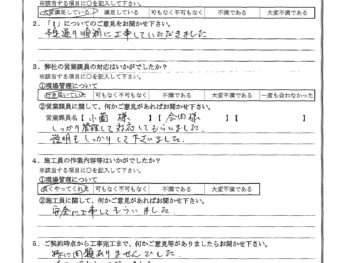 ※該当する項目に○を記入して下さい。
大変満足している 満足している 可もなく不可もなく 不満である 大変不満である
2．「1」についてのご意見をお聞かせ下さい。
に工事していただきました
3．弊社の営業課員の対応はいかがでしたか？
※該当する項目に○を記入して下さい。
①現場管理について
行き届いていた 可もなく不可もなく 不満である 大変不満である 一度も会わなかった
②営業課員に関して、何かご意見があればお聞かせ下さい。
営業課員名【小園 様 】【合田様 】
しっかり管理して対応してもらいました。
説明もしっかりして下さいました。
4．施工員の作業内容等はいかがでしたか？
※該当する項目に○を記入して下さい。
①現場管理について
良くやってくれた 可もなく不可もなく 不満である 大変不満である
②施工員に関して、何かご意見があればお聞かせ下さい。
安全に工事してもらいました。
5．ご契約時点から工事完工まで、何かご意見等がありましたらお聞かせ下さい。
特に問題ありませんでした。